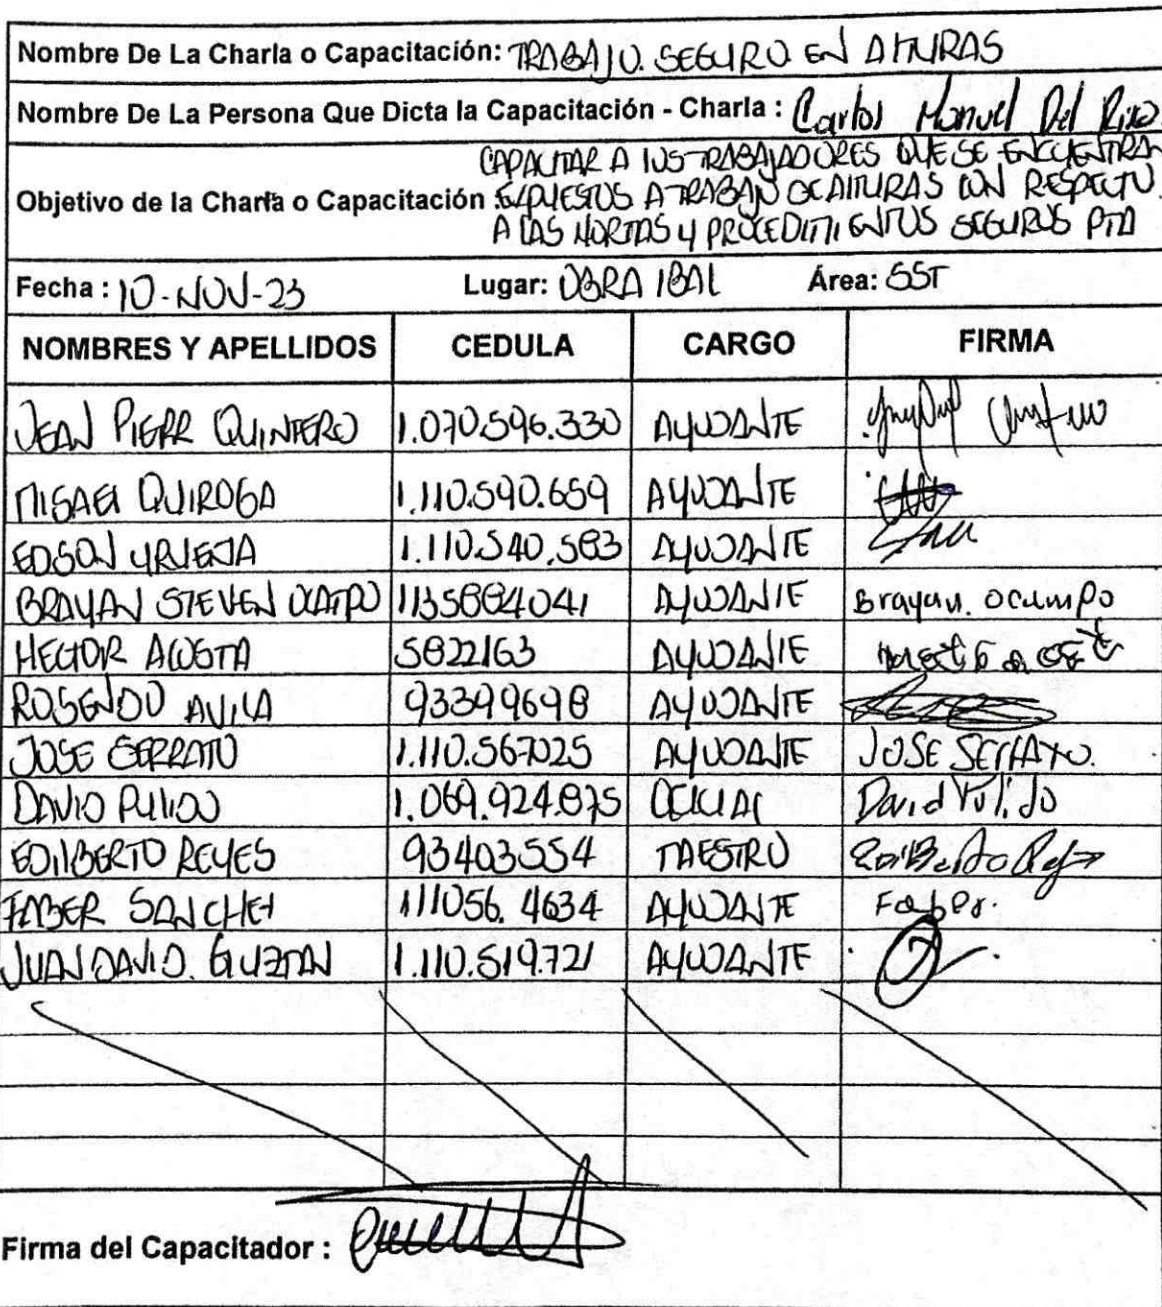 Nombre De La Charla o Capacitación: TRABAJO. SEGURO EN ALTURAS
Nombre De La Persona Que Dicta la Capacitación - Charla : Carlos Manuel Del Rio
CAPACITAR A LOS TRABAJADORES QUE SE ENCUENTRAN
Objetivo de la Charla o Capacitación EXPUESTOS A TRABAJO DE ALTURAS CON RESPECTO
A LAS NORMAS Y PROCEDIMIENTOS SEGUROS PTA
Fecha : 10-NOV-23 Lugar: OBRA IBAL Área: SST
NOMBRES Y APELLIDOS CEDULA CARGO FIRMA
JEAN PIERR QUINTERO 1.070.596.330 AYUDANTE
MISAEL QUIROGA 1.110.590.659 AYUDANTE
EDSON URUEÑA 1.110.540.583 AYUDANTE
BRAYAN STEVEN OCAMPO 1135884041 AYUDANTE Brayan. ocampo
HECTOR ACOSTA 5822163 AYUDANTE
ROSENDO AVILA 93399698 AYUDANTE
JOSE SERRATO 1.110.567025 AYUDANTE JOSE SERRATO.
DAVID PULIDO 1.069.924.875 OFICIAL David Pulido
EDILBERTO REYES 93403554 MAESTRO Edilberto Reyes
FABER SANCHEZ 111056. 4634 AYUDANTE Faber.
JUAN DAVID. GUZMAN 1.110.519.721 AYUDANTE
Firma del Capacitador :